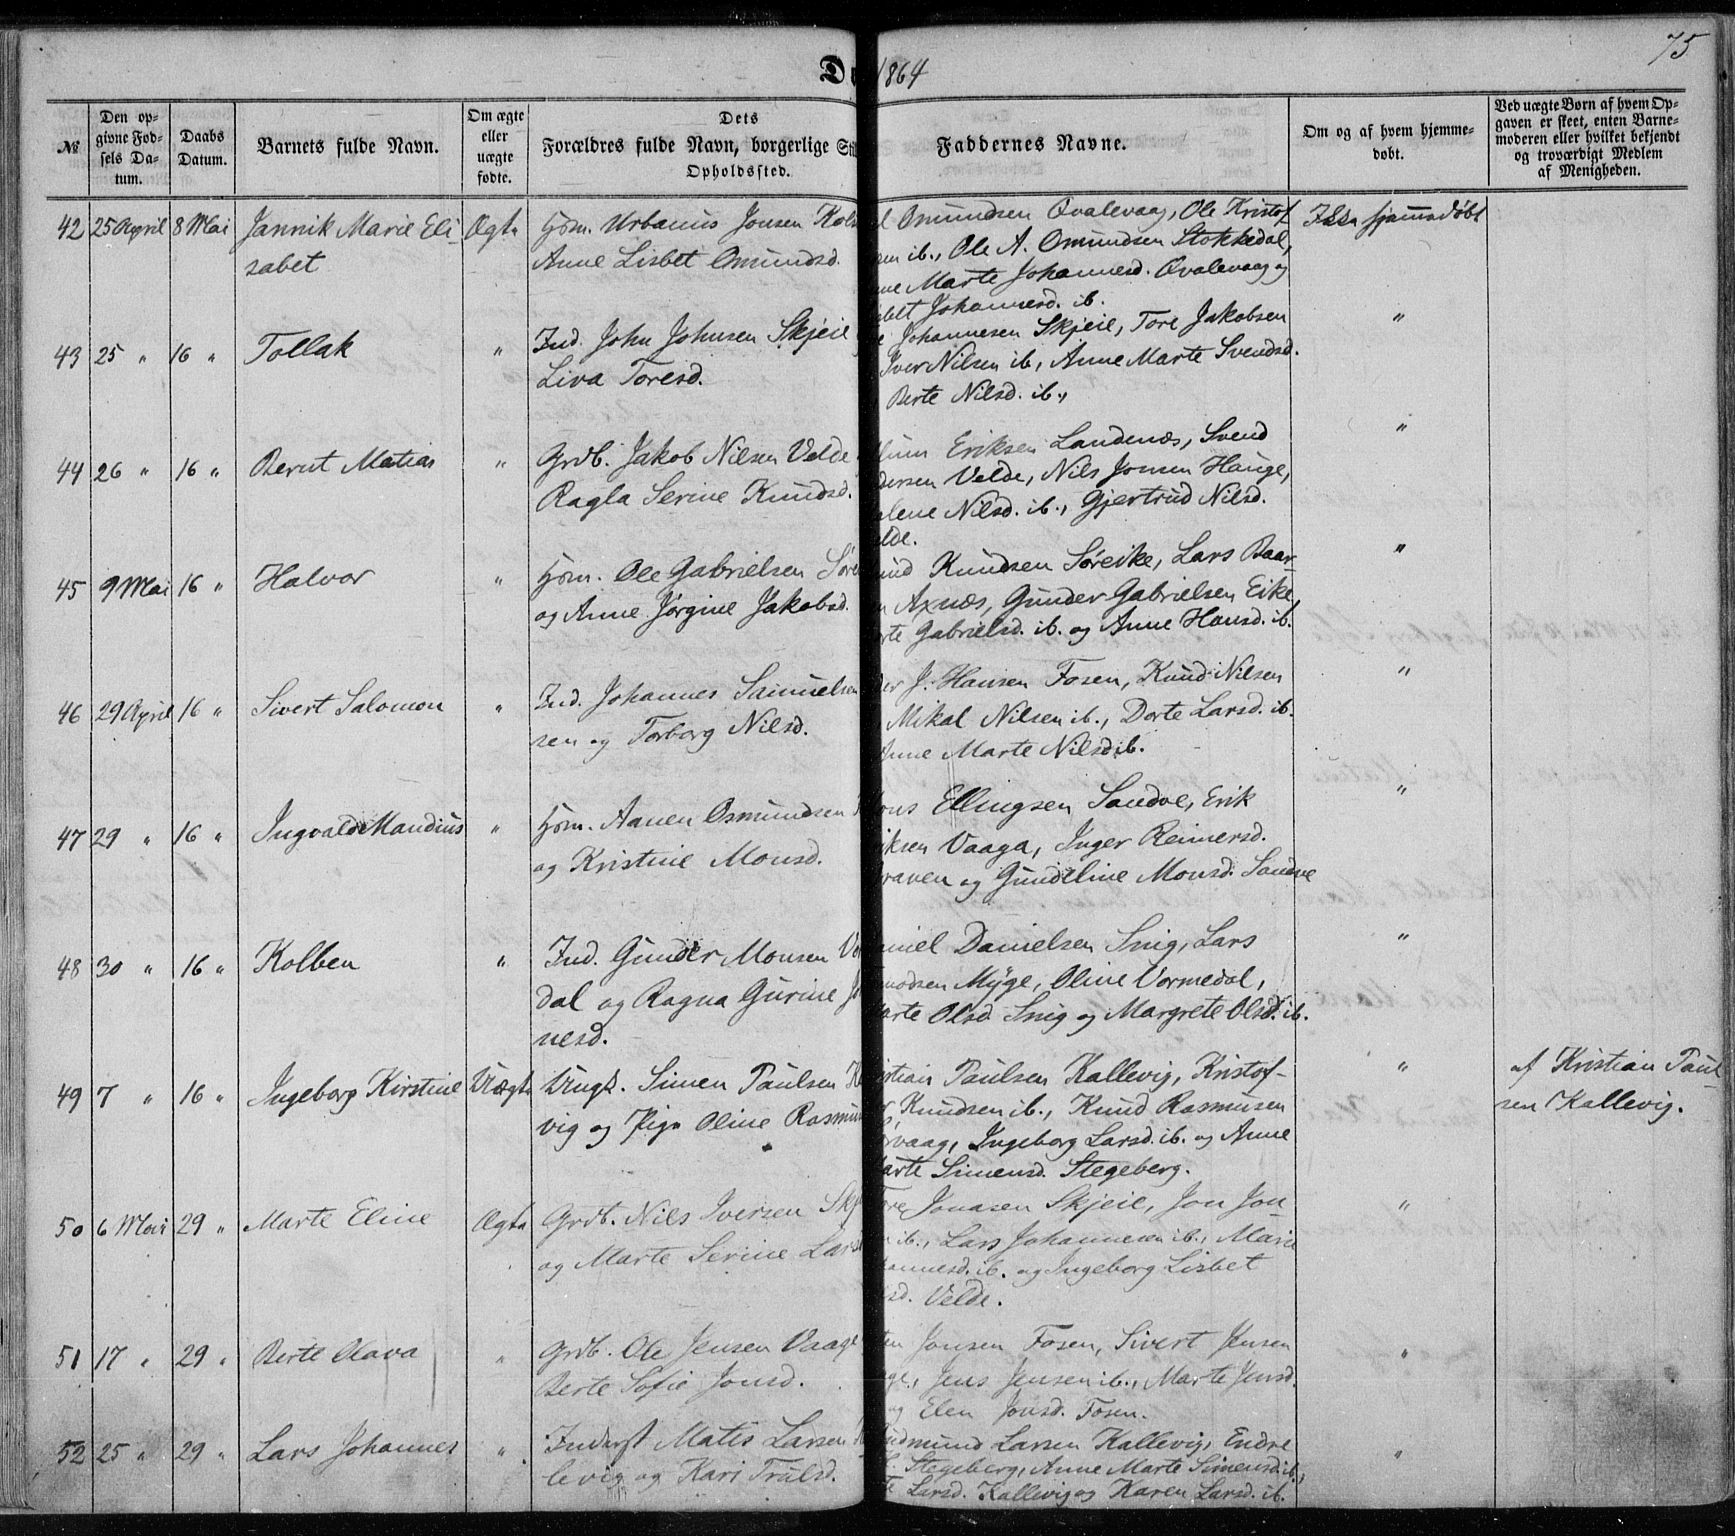 75
D 1864
№
Den op-
givne Fød-
sels Da-
tum.
Daabs
Datum.
Barnets fulde Navn.
Om ægte
eller
uægte
fødte.
Dets
Forældres fulde Navn, borgerlige
Opholdssted.
Faddernes Navne.
Om og af hvem hjemme-
døbt.
Ved uægte Børn af hvem Op-
gaven er skeet, enten Barne-
moderen eller hvilket bekjendt
og troværdigt Medlem
af Menigheden.
42 25 April 8 Mai Jannik Marie Eli-
sabet
Ægte
Hjsm. Urbanus Jonsen
Anne Lisbet Omundsd.
Omundsen Qvalevaag, Ole Kristof-
sen ib., Ole A. Omundsen Stokkedal,
Marte Johannesd. Qvalevaag og
Johannesd. ib.
Ikke hjemmedøbt
43 25 " 16 " Tollak "
Ind. John Johnsen Skjeie
Liva Toresd.
Johannesen Skjeie, Tore Jakobsen
Iver Nilsen ib, Anne Marte Svendsd.
Berte Nilsd. ib.,
"
44 26 " 16 " Bernt Matias "
Grdb. Jakob Nilsen Velde
Ragla Serine Knudsd.
Eriksen Landenæs, Svend
Velde, Nils Jonsen Hauge,
Nilsd. ib., Gjertrud Nilsd.
"
45 9 Mai 16 " Halvor "
Hjsm. Ole Gabrielsen
og Anne Jørgine Jakobsd.
Knudsen Søreike, Lars Baar-
Axnæs, Gunder Gabrielsen Eike,
Gabrielsd. ib. og Anne Hansd. ib.
"
46 29 April 16 " Sivert Salomon "
Ind. Johannes Samuelsen
sen og Torborg Nilsd.
J. Hansen Fosen, Knud Nilsen
Mikal Nilsen ib., Dorte Larsd. ib.
Anne Marte Nilsd ib.
"
47 29 " 16 " Ingvald Mandius "
Hjsm. Aanen Osmundsen
og Kristine Monsd.
Ellingsen Sandve, Erik
Vaaga, Inger Reimersd.
og Gundeline Monsd. Sandve
"
48 30 " 16 " Kolben "
Ind. Gunder Monsen
dal og Ragna Gurine
nesd.
Danielsen Snig, Lars
Myge, Oline Vormedal,
Marte Olsd. Snig og Margrete Olsd. ib.
"
49 7 " 16 " Ingeborg Kirstine Uægte
Ungk. Simen Paulsen
vig og Pige Oline
Paulsen Kallevig, Kristof-
Knudsen ib., Knud Rasmusen
Ingeborg Larsd. ib. og Anne
Marte Simensd. Stegeberg.
"
af Kristian Paul-
sen Kallevig.
50 6 Mai 29 " Marte Eline Ægte
Grdb. Nils Iversen
og Marte Serine
Jonasen Skjeie, Jon Jon-
ib., Lars Johannesen ib., Marie
ib. og Ingeborg Lisbet
Velde.
"
51 17 " 29 " Berte Olava "
Grdb. Ole Jensen Vaage
Berte Sofie Jonsd.
Jonsen Fosen, Sivert Jensen
Jens Jensen ib., Marte Jensd.
og Elen Jonsd. Fosen.
"
52 25 " 29 " Lars Johannes "
Inderst Matis Larsen
levig og Kari Trulsd.
Larsen Kallevig, Endre
Stegeberg, Anne Marte Simensd. ib.,
Larsd. Kallevig og Karen Larsd. ib.
"